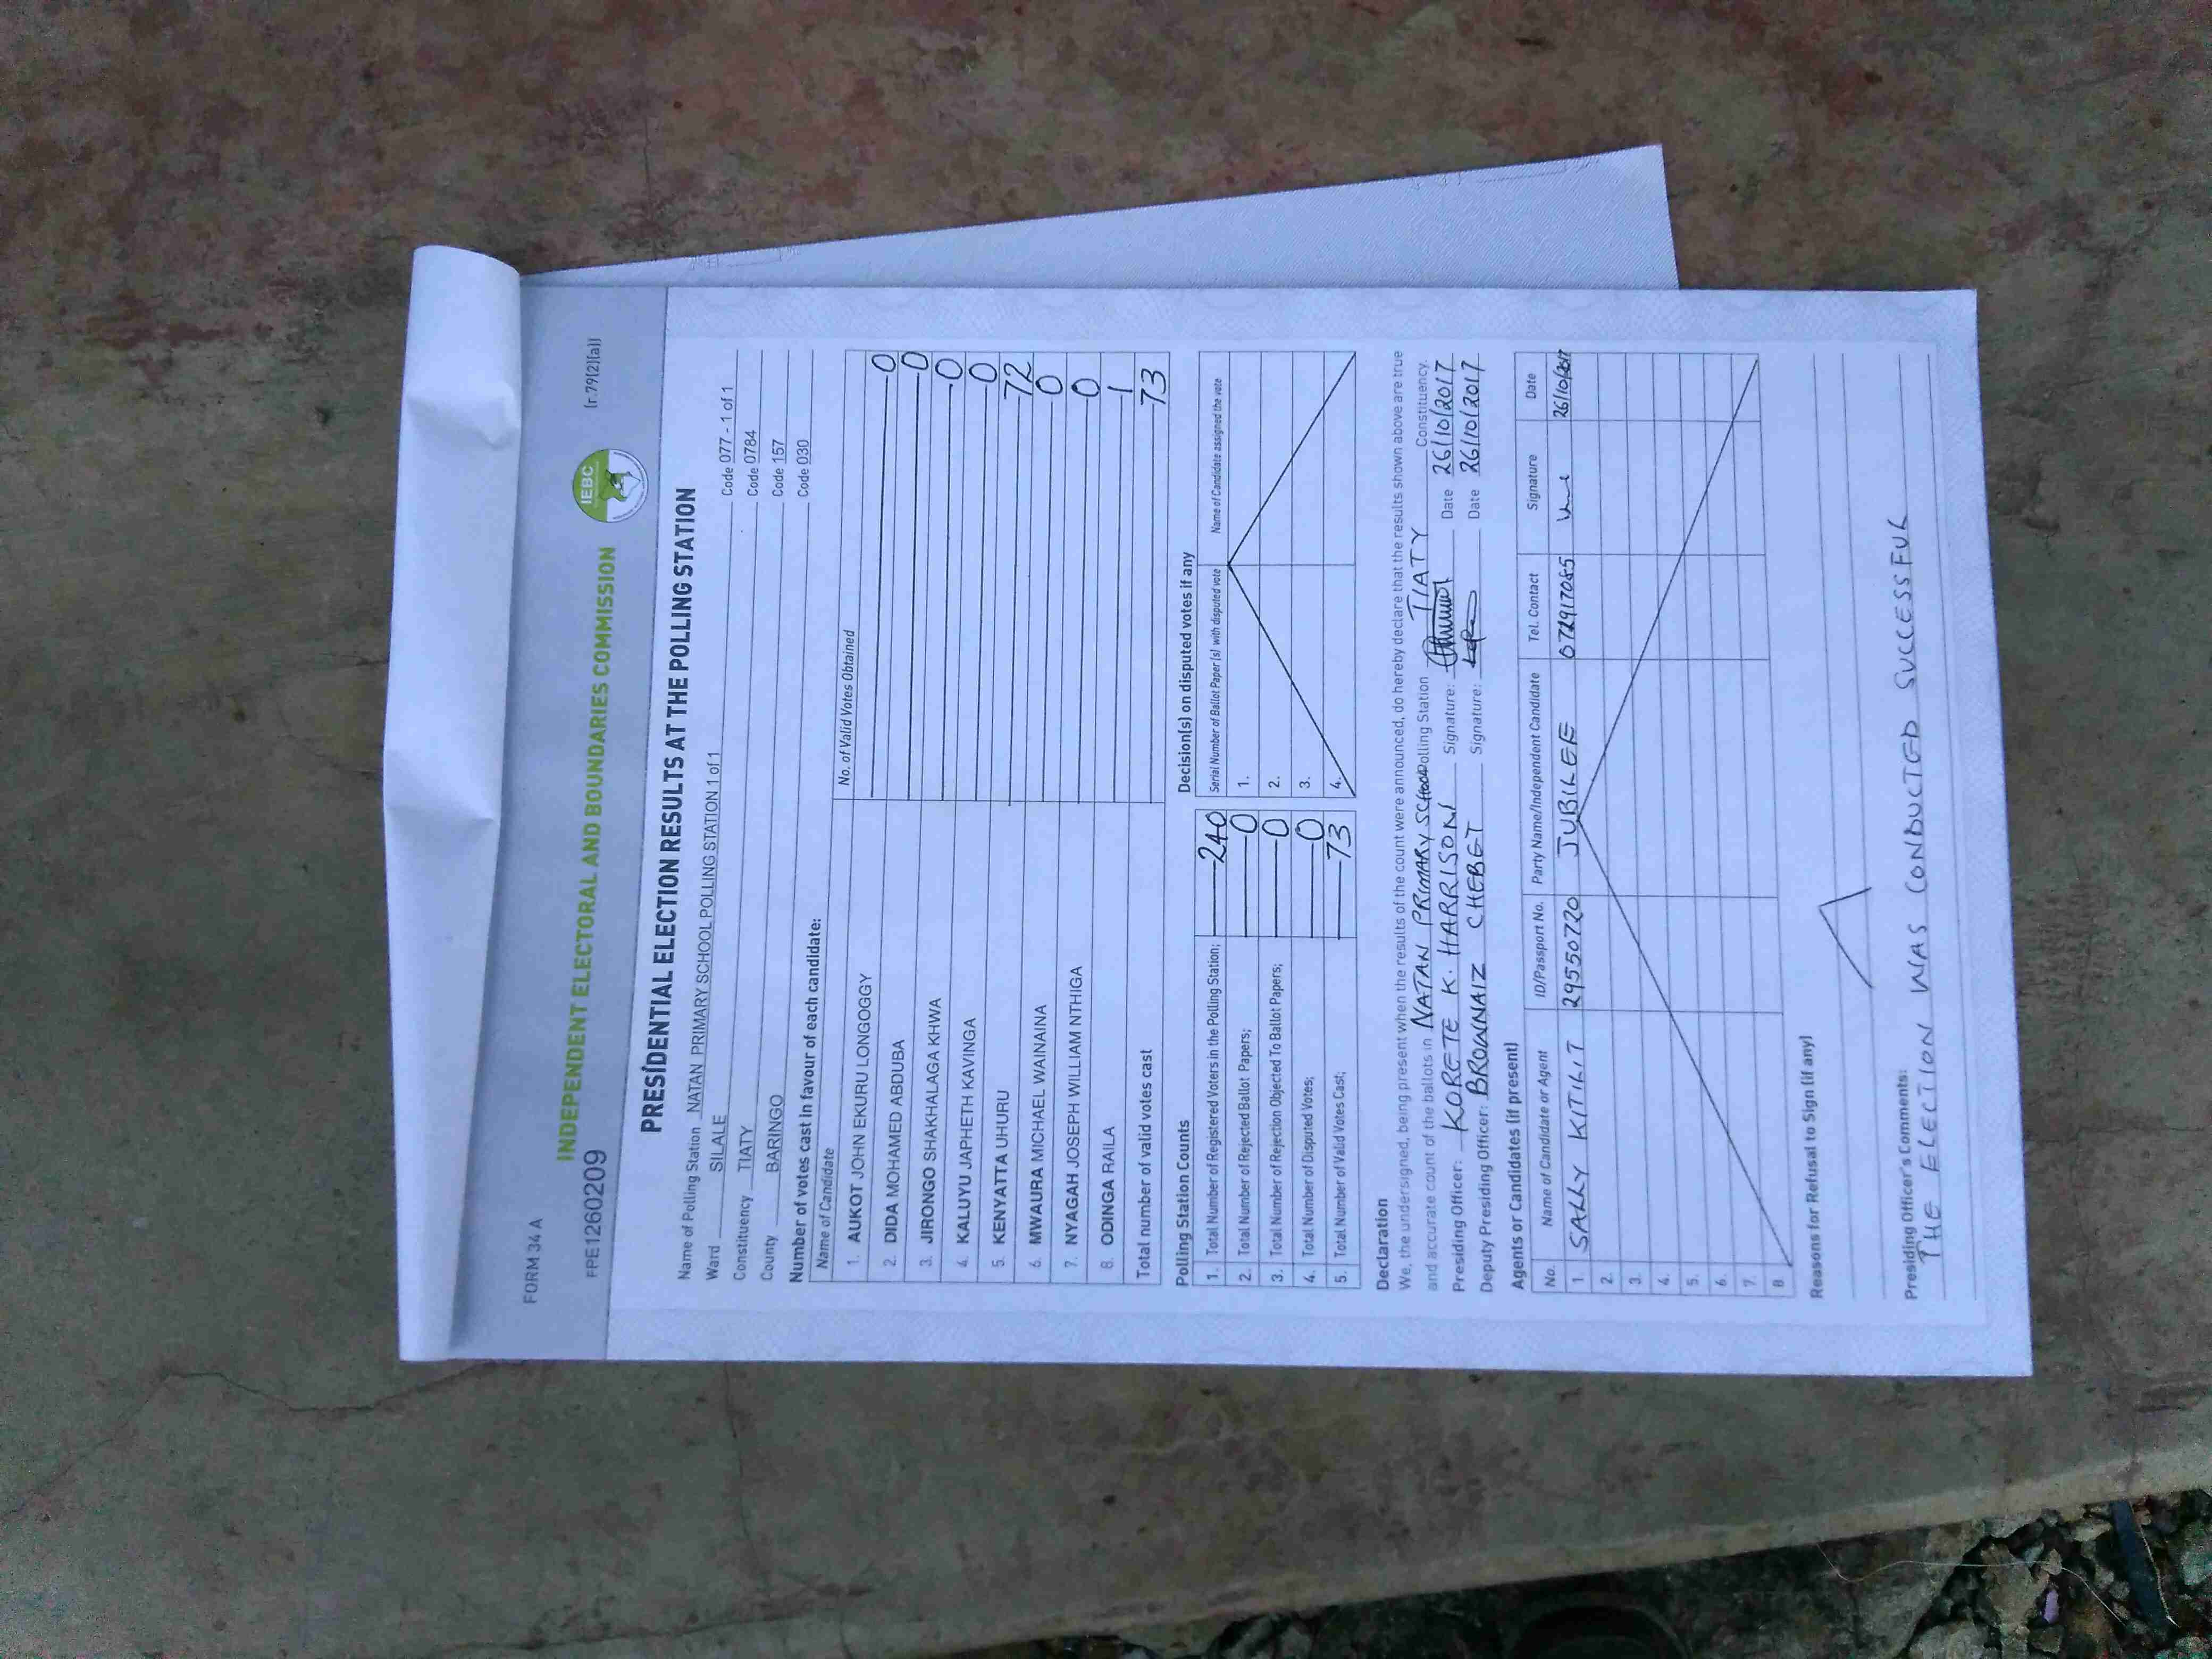 FORM 34 A
(r.79(2)(a))
INDEPENDENT ELECTORAL AND BOUNDARIES COMMISSION
IEBC
FPE1260209
PRESIDENTIAL ELECTION RESULTS AT THE POLLING STATION
Name of Polling Station NATAN PRIMARY SCHOOL POLLING STATION 1 of 1 Code 077 - 1 of 1
Ward SILALE Code 0784
Constituency TIATY Code 157
County BARINGO Code 030
Number of votes cast in favour of each candidate:
Name of Candidate No. of Valid Votes Obtained
1. AUKOT JOHN EKURU LONGOGGY 0
2. DIDA MOHAMED ABDUBA 0
3. JIRONGO SHAKHALAGA KHWA 0
4. KALUYU JAPHETH KAVINGA 0
5. KENYATTA UHURU 72
6. MWAURA MICHAEL WAINAINA 0
7. NYAGAH JOSEPH WILLIAM NTHIGA 0
8. ODINGA RAILA 1
Total number of valid votes cast 73
Polling Station Counts
1. Total Number of Registered Voters in the Polling Station; 240
2. Total Number of Rejected Ballot Papers; 0
3. Total Number of Rejection Objected To Ballot Papers; 0
4. Total Number of Disputed Votes; 0
5. Total Number of Valid Votes Cast; 73
Decision(s) on disputed votes if any
Serial Number of Ballot Paper (s) with disputed vote Name of Candidate assigned the vote
1.
2.
3.
4.
Declaration
We, the undersigned, being present when the results of the count were announced, do hereby declare that the results shown above are true
and accurate count of the ballots in NATAN PRIMARY SCHOOL Polling Station TIATY Constituency.
Presiding Officer: KORETE K. HARRISON Signature: Date 26/10/2017
Deputy Presiding Officer: BROWNAIZ CHEBET Signature: Date 26/10/2017
Agents or Candidates (if present)
No. Name of Candidate or Agent ID/Passport No. Party Name/Independent Candidate Tel. Contact Signature Date
1. SALLY KITILIT 29550720 JUBILEE 072917065 26/10/2017
2.
3.
4.
5.
6.
7.
8
Reasons for Refusal to Sign (if any)
Presiding Officer's Comments:
THE ELECTION WAS CONDUCTED SUCCESSFUL